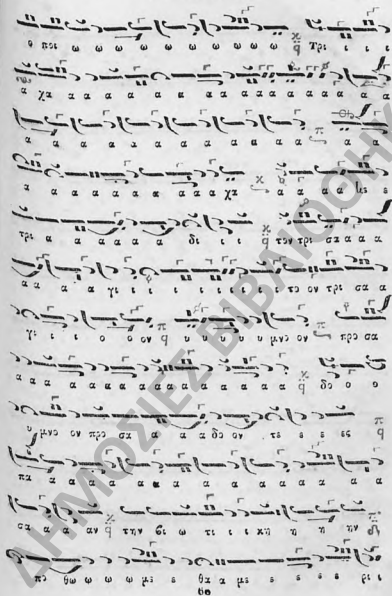 ο ποι ω ω ω ω ω ω ω ω ω ω Τρι ι ι ι
α χα α α α α α α α α α α α α α α α
α α α α α α α α α α α α
α α α α α α α α α α χα α α α α με ε
τρι α α α α α α δι ι ι τον τρι σα α α α
α α α γι ι ι ι ι ι ι ι ι ι το ον τρι σα α
γι ι ι ο ο ον υ υ υ υ υ υ μνο ον προ σα
α α α α α α α α α α α α α α δο ο ο
υ μνο ον προ σα α α α δο ον τε ε ε ες
πα α α α α α α α α α α α α α
σα α α αν την βι ω τι ι ι κη η η ην
πο θω ω ω ω με ε θα α με ε ε ε ε ρι ι
ΔΗΜΟΣΙΕΣ ΒΙΒΛΙΟΘΗΚ